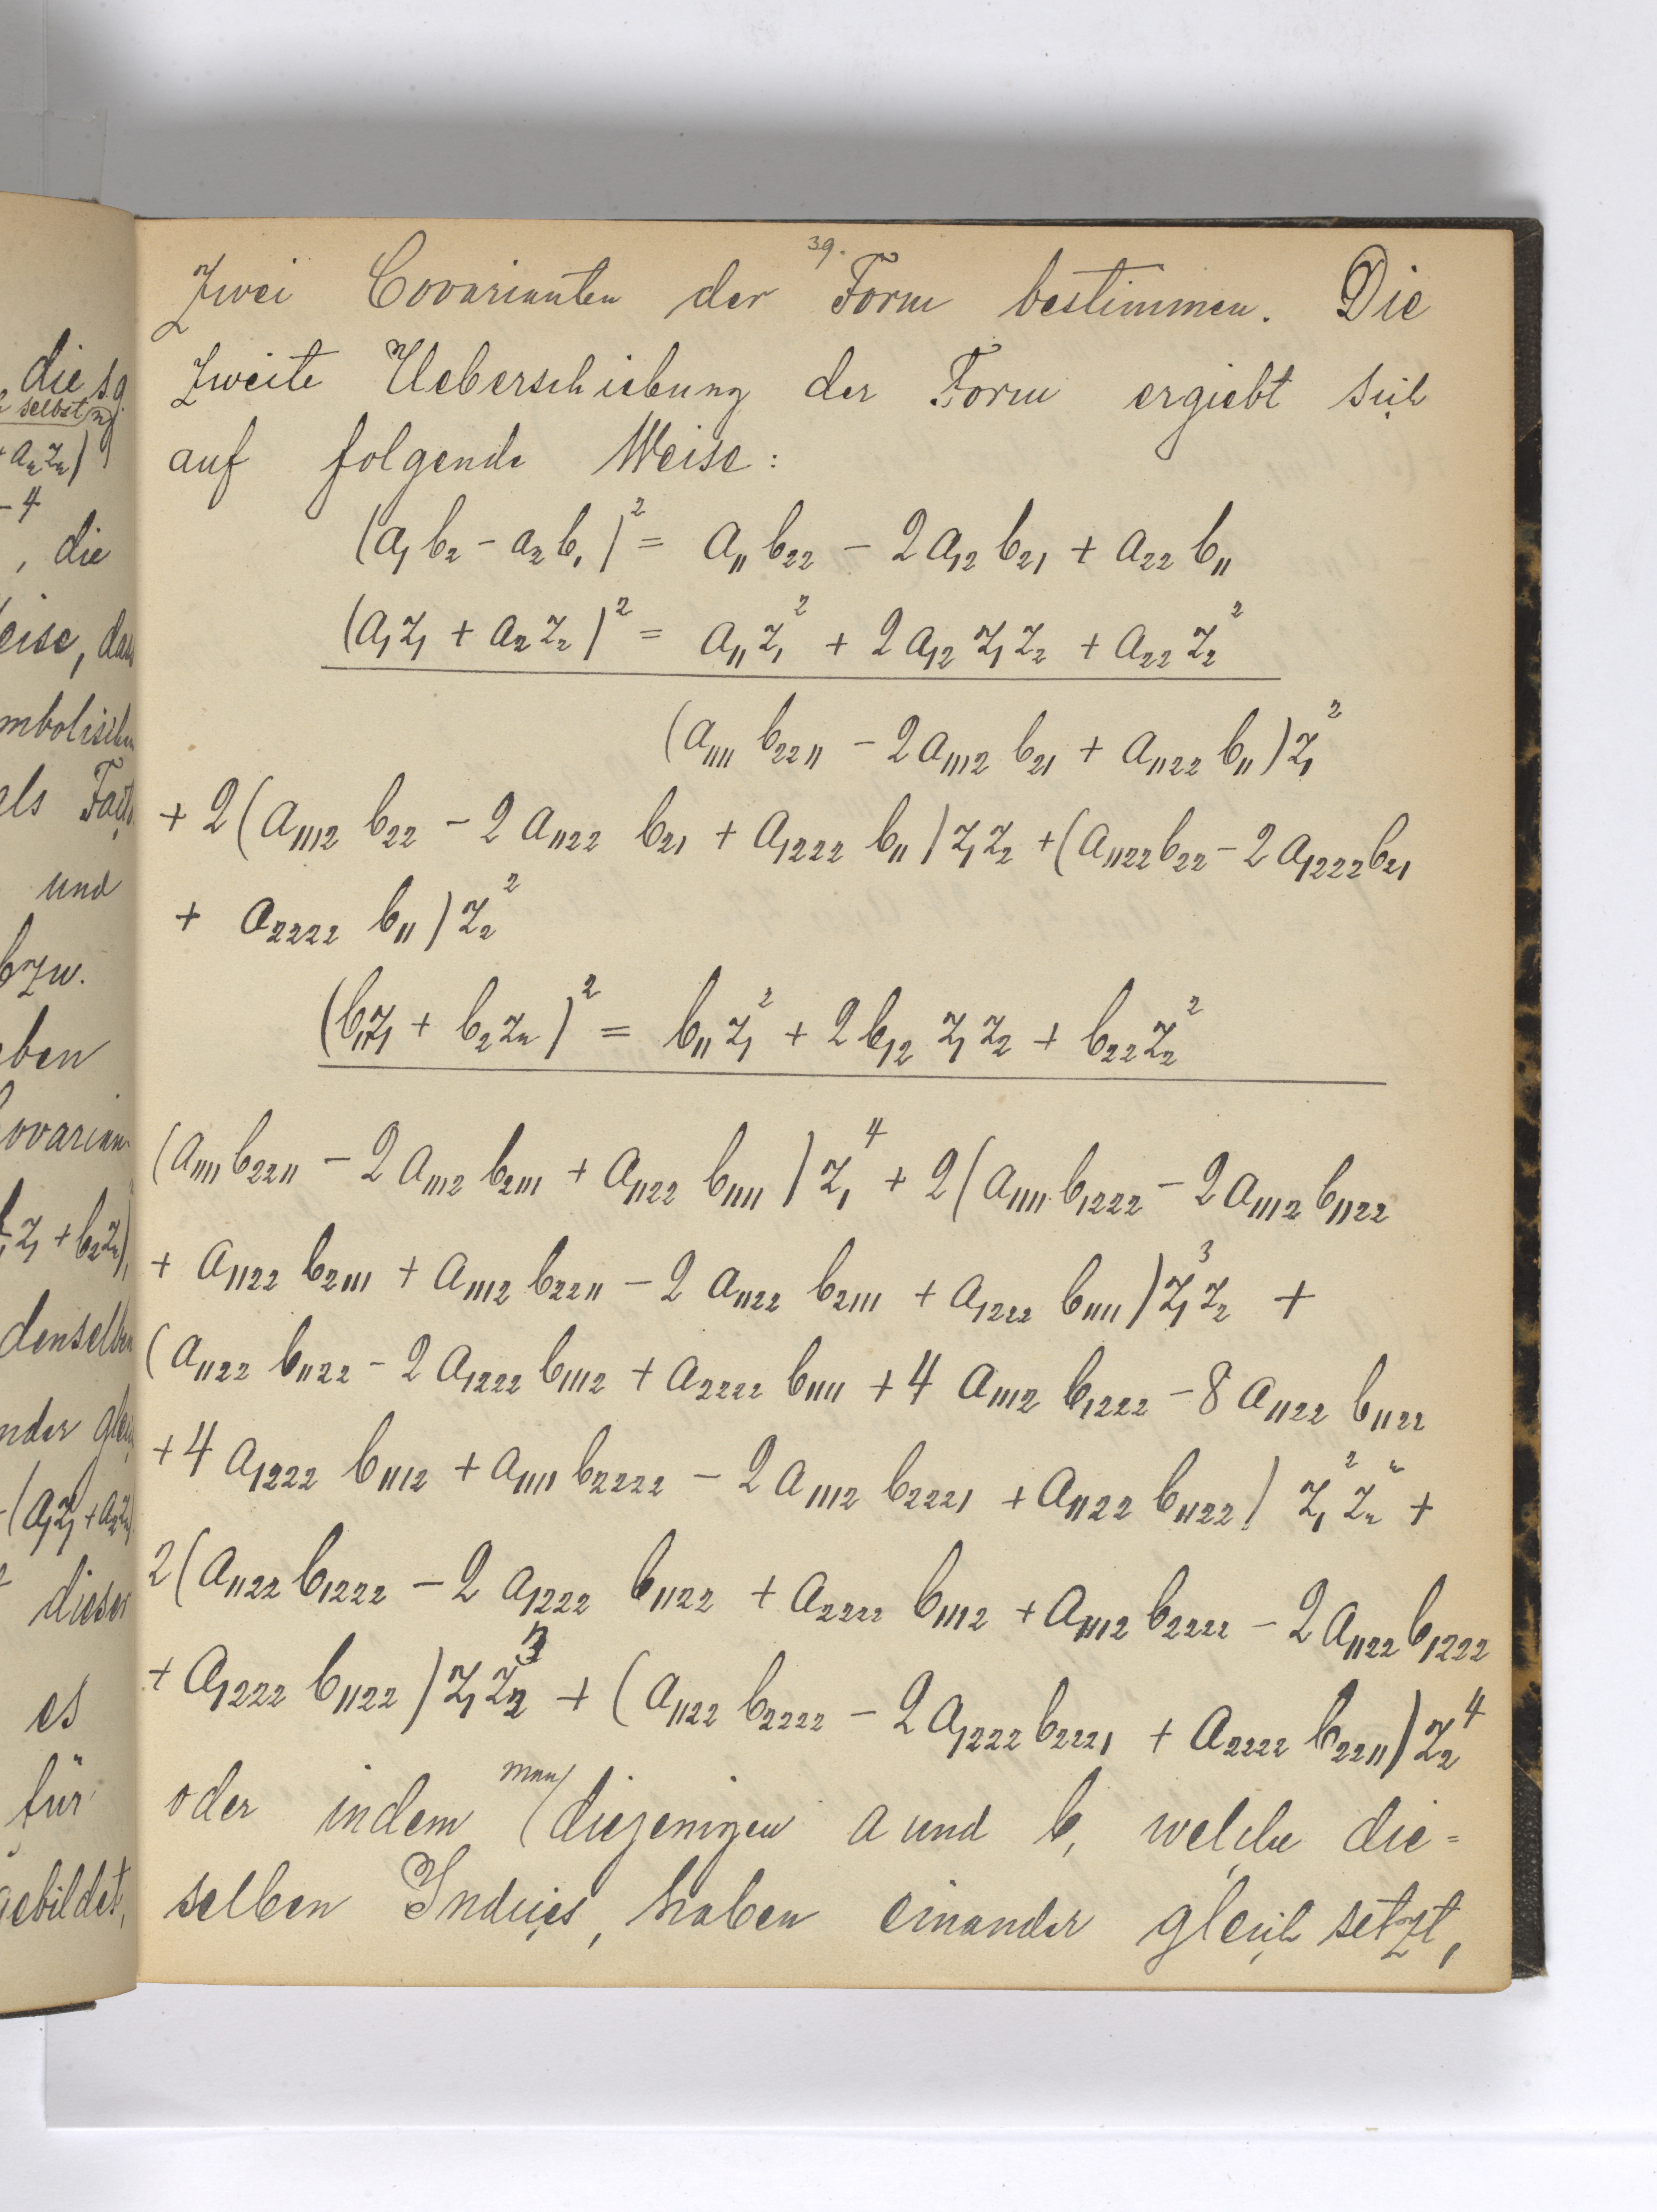 die s.g.
selbst
+ a₂z₂)
- 4
, die
eise, dass
mbolischen
als
und
bzw.
eben
ovarian-
z₁ + b₂z₂),
denselben
nder
(a₁z₁ + a₂z₂
dieser
es
für
gebildet,
39.
Zwei Covarianten der Form bestimmen. Die
zweite Ueberschiebung der Form ergiebt sich
auf folgende Weise:
(a₁b₂ - a₂b₁)² = a₁₁b₂₂ - 2a₁₂b₂₁ + a₂₂b₁₁
(a₁z₁ + a₂z₂)² = a₁₁z₁² + 2a₁₂z₁z₂ + a₂₂z₂²
(a₁₁₁₁b₂₂₁₁ - 2a₁₁₁₂b₂₁ + a₁₁₂₂b₁₁)z₁²
+ 2(a₁₁₁₂b₂₂ - 2a₁₁₂₂b₂₁ + a₁₂₂₂b₁₁)z₁z₂ + (a₁₁₂₂b₂₂ - 2a₁₂₂₂b₂₁
+ a₂₂₂₂b₁₁)z₂²
(b₁z₁ + b₂z₂)² = b₁₁z₁² + 2b₁₂z₁z₂ + b₂₂z₂²
(a₁₁₁₁b₂₂₁₁ - 2a₁₁₁₂b₂₁₁₁ + a₁₁₂₂b₁₁₁₁)z₁⁴ + 2(a₁₁₁₁b₁₂₂₂ - 2a₁₁₁₂b₁₁₂₂
+ a₁₁₂₂b₂₁₁₁ + a₁₁₁₂b₂₂₁₁ - 2a₁₁₂₂b₂₁₁₁ + a₁₂₂₂b₁₁₁₁)z₁³z₂ +
(a₁₁₂₂b₁₁₂₂ - 2a₁₂₂₂b₁₁₁₂ + a₂₂₂₂b₁₁₁₁ + 4a₁₁₁₂b₁₂₂₂ - 8a₁₁₂₂b₁₁₂₂
+ 4a₁₂₂₂b₁₁₁₂ + a₁₁₁₁b₂₂₂₂ - 2a₁₁₁₂b₂₂₂₁ + a₁₁₂₂b₁₁₂₂)z₁²z₂² +
2(a₁₁₂₂b₁₂₂₂ - 2a₁₂₂₂b₁₁₂₂ + a₂₂₂₂b₁₁₁₂ + a₁₁₁₂b₂₂₂₂ - 2a₁₁₂₂b₁₂₂₂
+ a₁₂₂₂b₁₁₂₂)z₁z₂³ + (a₁₁₂₂b₂₂₂₂ - 2a₁₂₂₂b₂₂₂₁ + a₂₂₂₂b₂₂₁₁)z₂⁴
oder indem man diejenigen a und b, welche die=
selben Indices, haben einander gleich setzt,